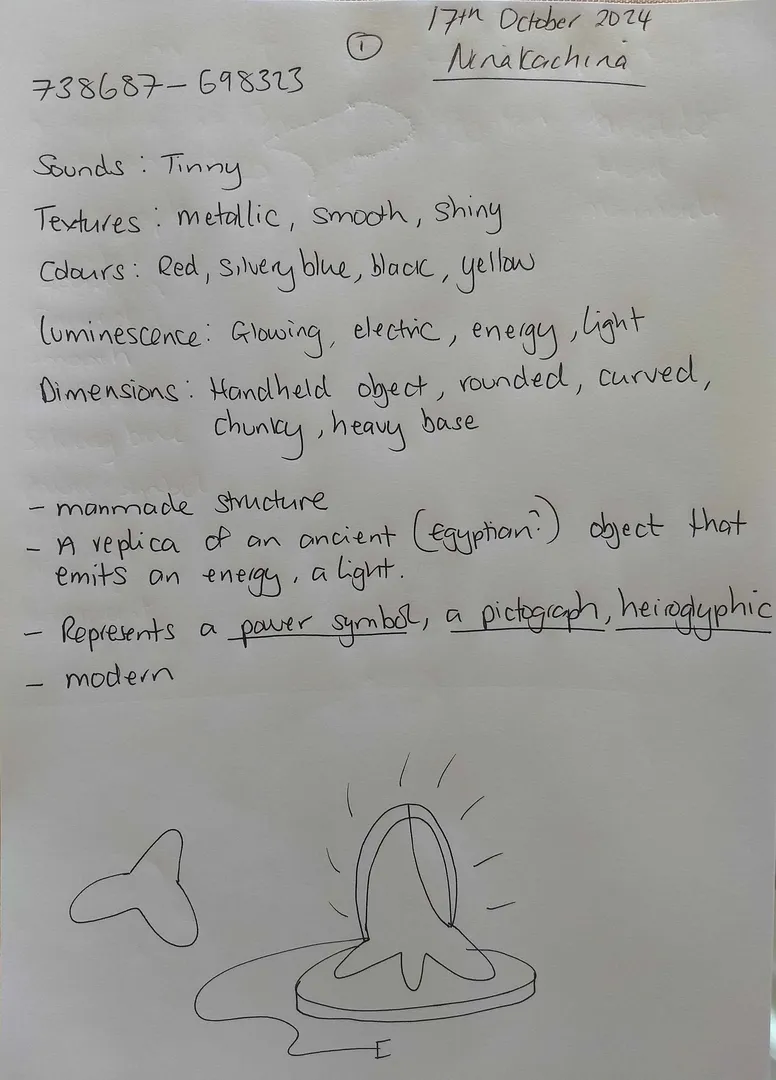 17th October 2024
1
Nina Kachina
738687-698323
Sounds: Tinny
Textures: metallic, smooth, shiny
Colours: Red, silvery blue, black, yellow
Luminescence: Glowing, electric, energy, light
Dimensions: Handheld object, rounded, curved,
chunky, heavy base
- manmade structure
- A replica of an ancient (Egyptian?) object that
emits an energy, a light.
- Represents a power symbol, a pictograph, heiroglyphic
- modern
E